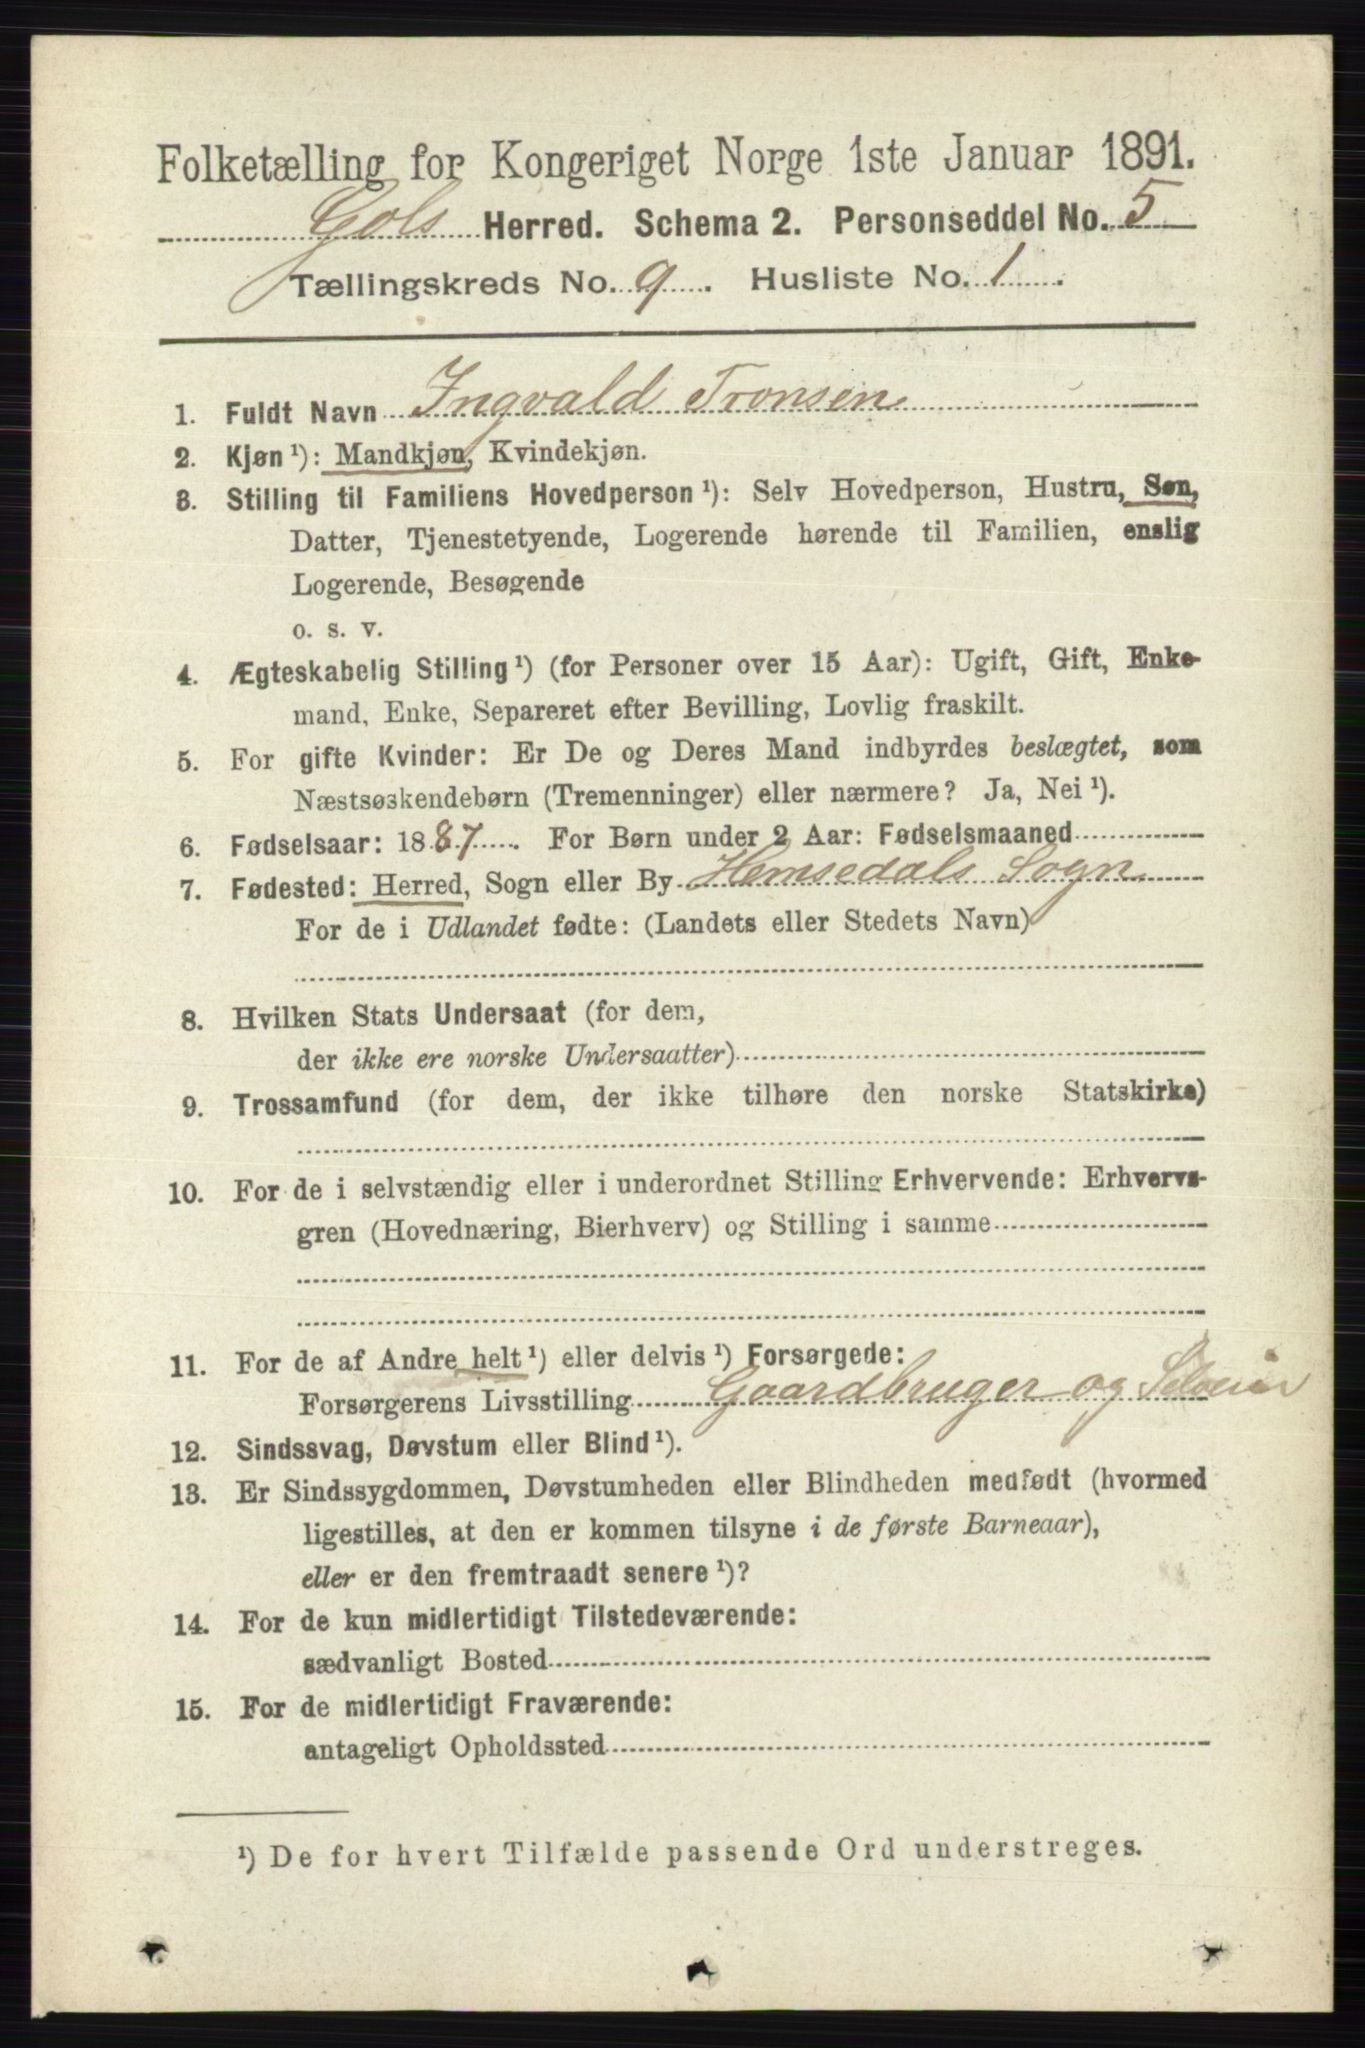 Folketælling for Kongeriget Norge 1ste Januar 1891.
Gols Herred. Schema 2. Personseddel No. 5
Tællingskreds No. 9. Husliste No. 1.
1. Fuldt Navn Ingvald Tronsen
2. Kjøn ¹): Mandkjøn, Kvindekjøn.
3. Stilling til Familiens Hovedperson ¹): Selv Hovedperson, Hustru, Søn,
Datter, Tjenestetyende, Logerende hørende til Familien, enslig
Logerende, Besøgende
o. s. v.
4. Ægteskabelig Stilling ¹) (for Personer over 15 Aar): Ugift, Gift, Enke-
mand, Enke, Separeret efter Bevilling, Lovlig fraskilt.
5. For gifte Kvinder: Er De og Deres Mand indbyrdes beslægtet, som
Næstsøskendebørn (Tremenninger) eller nærmere? Ja, Nei ¹).
6. Fødselsaar: 1887. For Børn under 2 Aar: Fødselsmaaned
7. Fødested: Herred, Sogn eller By Hemsedals Sogn
For de i Udlandet fødte: (Landets eller Stedets Navn)
8. Hvilken Stats Undersaat (for dem,
der ikke ere norske Undersaatter)
9. Trossamfund (for dem, der ikke tilhøre den norske Statskirke)
10. For de i selvstændig eller i underordnet Stilling Erhvervende: Erhvervs-
gren (Hovednæring, Bierhverv) og Stilling i samme
11. For de af Andre helt ¹) eller delvis ¹) Forsørgede:
Forsørgerens Livsstilling Gaardbruger og Selveier
12. Sindssvag, Døvstum eller Blind ¹).
13. Er Sindssygdommen, Døvstumheden eller Blindheden medfødt (hvormed
ligestilles, at den er kommen tilsyne i de første Barneaar),
eller er den fremtraadt senere ¹)?
14. For de kun midlertidigt Tilstedeværende:
sædvanligt Bosted
15. For de midlertidigt Fraværende:
antageligt Opholdssted
¹) De for hvert Tilfælde passende Ord understreges.